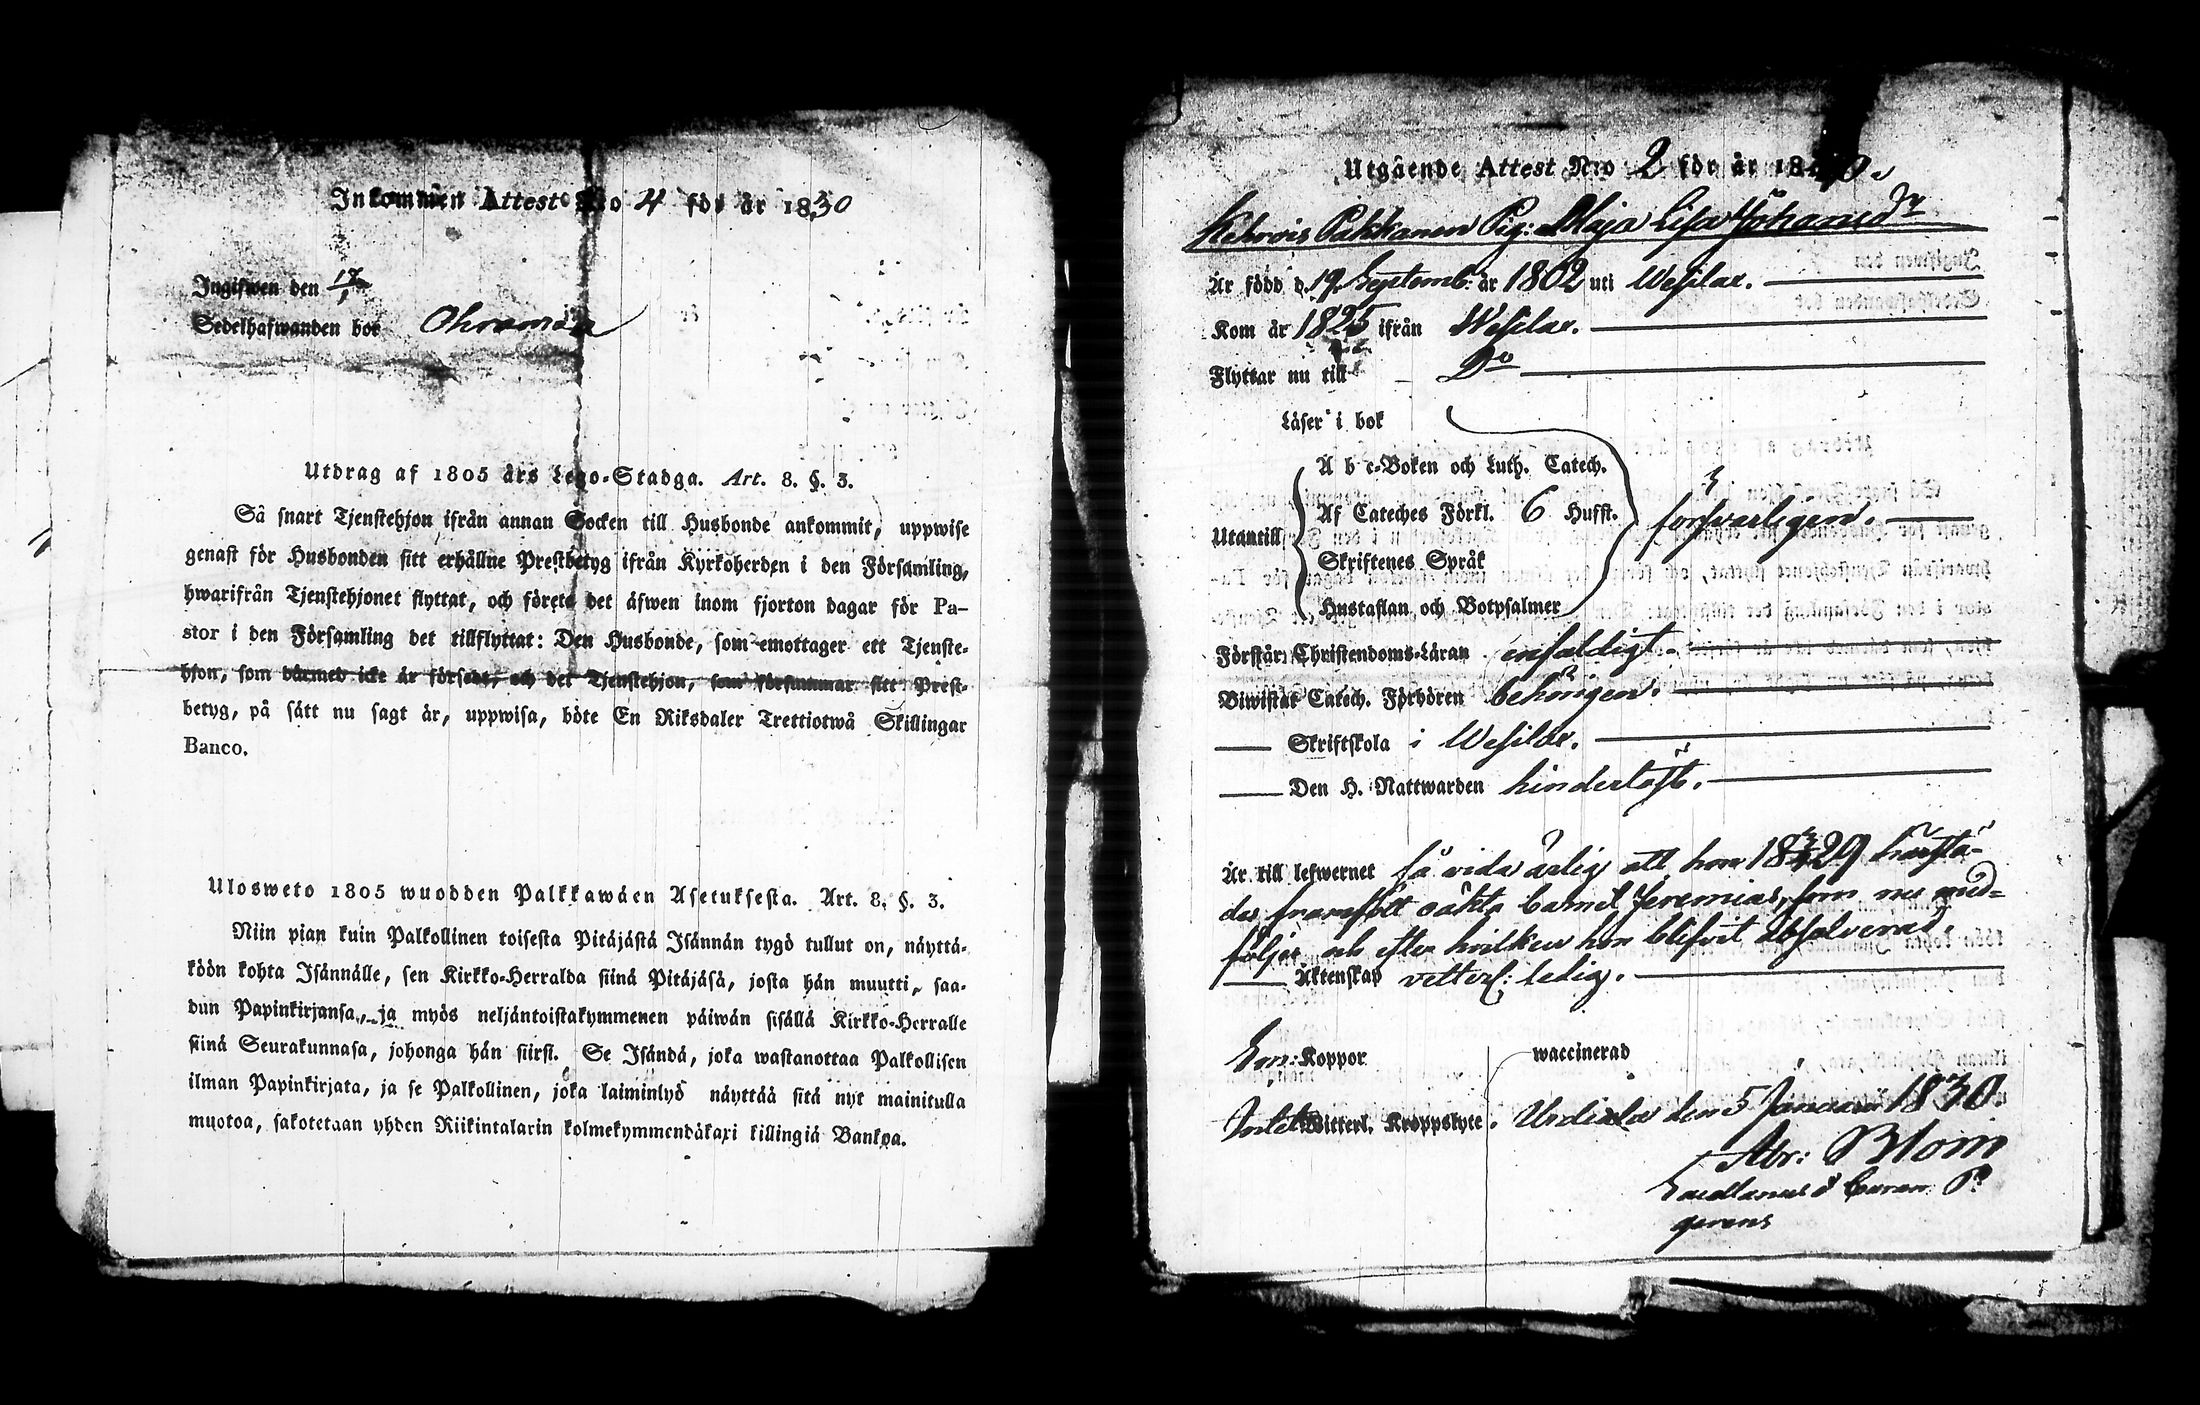 Inkommen Attest No 4 för år 1830
Ingifwen den 17/1
Sedelhafwanden bor Ohramäen
Utdrag af 1805 års Lego-Stadga. Art. 8. §. 3.
Så snart Tjenstehjon ifrån annan Socken till Husbonde ankommit, uppwise
genast för Husbonden sitt erhållne Prestbetyg ifrån Kyrkoherden i den Församling,
hwarifrån Tjenstehjonet flyttat, och förete det äfwen inom fjorton dagar för Pa-
stor i den Församling det tillflyttat: Den Husbonde, som emottager ett Tjenste-
hjon, som därmed icke är försedt, och det Tjenstehjon, som försummar sitt Prest-
betyg, på sätt nu sagt är, uppwisa, böte En Riksdaler Trettiotwå Skillingar
Banco.
Ulosweto 1805 wuodden Palkkawäen Asetuksesta. Art. 8. §. 3.
Niin pian kuin Palkollinen toisesta Pitäjästä Isännän tygö tullut on, näyttä-
köön kohta Isännälle, sen Kirkko-Herralda siinä Pitäjäsä, josta hän muutti, saa-
dun Papinkirjansa, ja myös neljäntoistakymmenen päiwän sisällä Kirkko-Herralle
siinä Seurakunnasa, johonga hän siirsi. Se Isändä, joka wastanottaa Palkollisen
ilman Papinkirjata, ja se Palkollinen, joka laiminlyö näyttää sitä nyt mainitulla
muotoa, sakotetaan yhden Riikintalarin kolmekymmendäkaxi killingiä Bankoa.
Utgående Attest Nro 2 för år 1830.
Kehrois Pakkanen Pig: Maja Lisa Johansdr
Är född d. 19 Septemb: år 1802 uti Wesilax.
Kom år 1825 ifrån Wesilax.
Flyttar nu till Do
Läser i bok
A b c-Boken och Luth. Catech.
Af Cateches Förkl. 6 Hufst.
Utantill försvarligen.
Skriftenes Språk
Hustaflan och Botpsalmer
Förstår Christendoms-Läran enfaldigt.
Biwistat Catech. Förhören behörigen.
Skriftskola i Wesilax.
Den H. Nattwarden hinderlöst.
Är till lefwernet så vida ärlig att hon 1829 härstä-
des framfödt oäkta barnet Jeremias, som nu med-
följer och efter hvilken hon blifvit absolverad.
Äktenskap vetterl: ledig.
Koppor waccinerad
Intet Witterl. Kroppslyte. Urdiala den 5 Januarii 1830.
Abr: Blom
Sacellanus & Curam P.
gerens